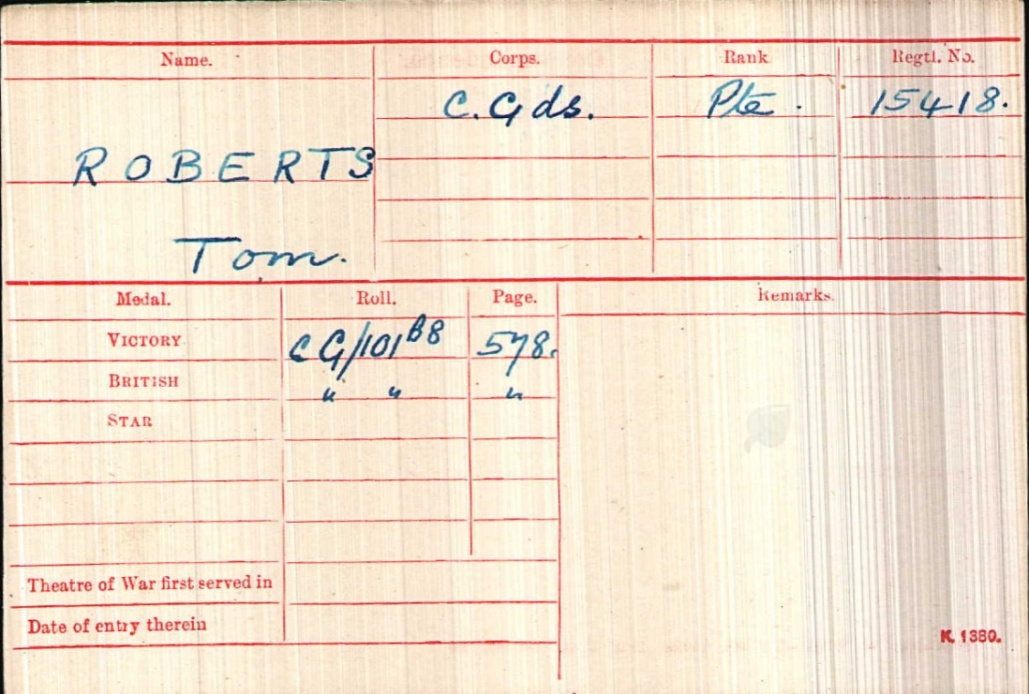 Name. Corps. Rank Regtl. No.
C. Gds. Pte. 15418.
ROBERTS
Tom.
Medal. Roll. Page. Remarks.
VICTORY CG/101 B8 578.
BRITISH " " "
STAR
Theatre of War first served in
Date of entry therein
K. 1380.